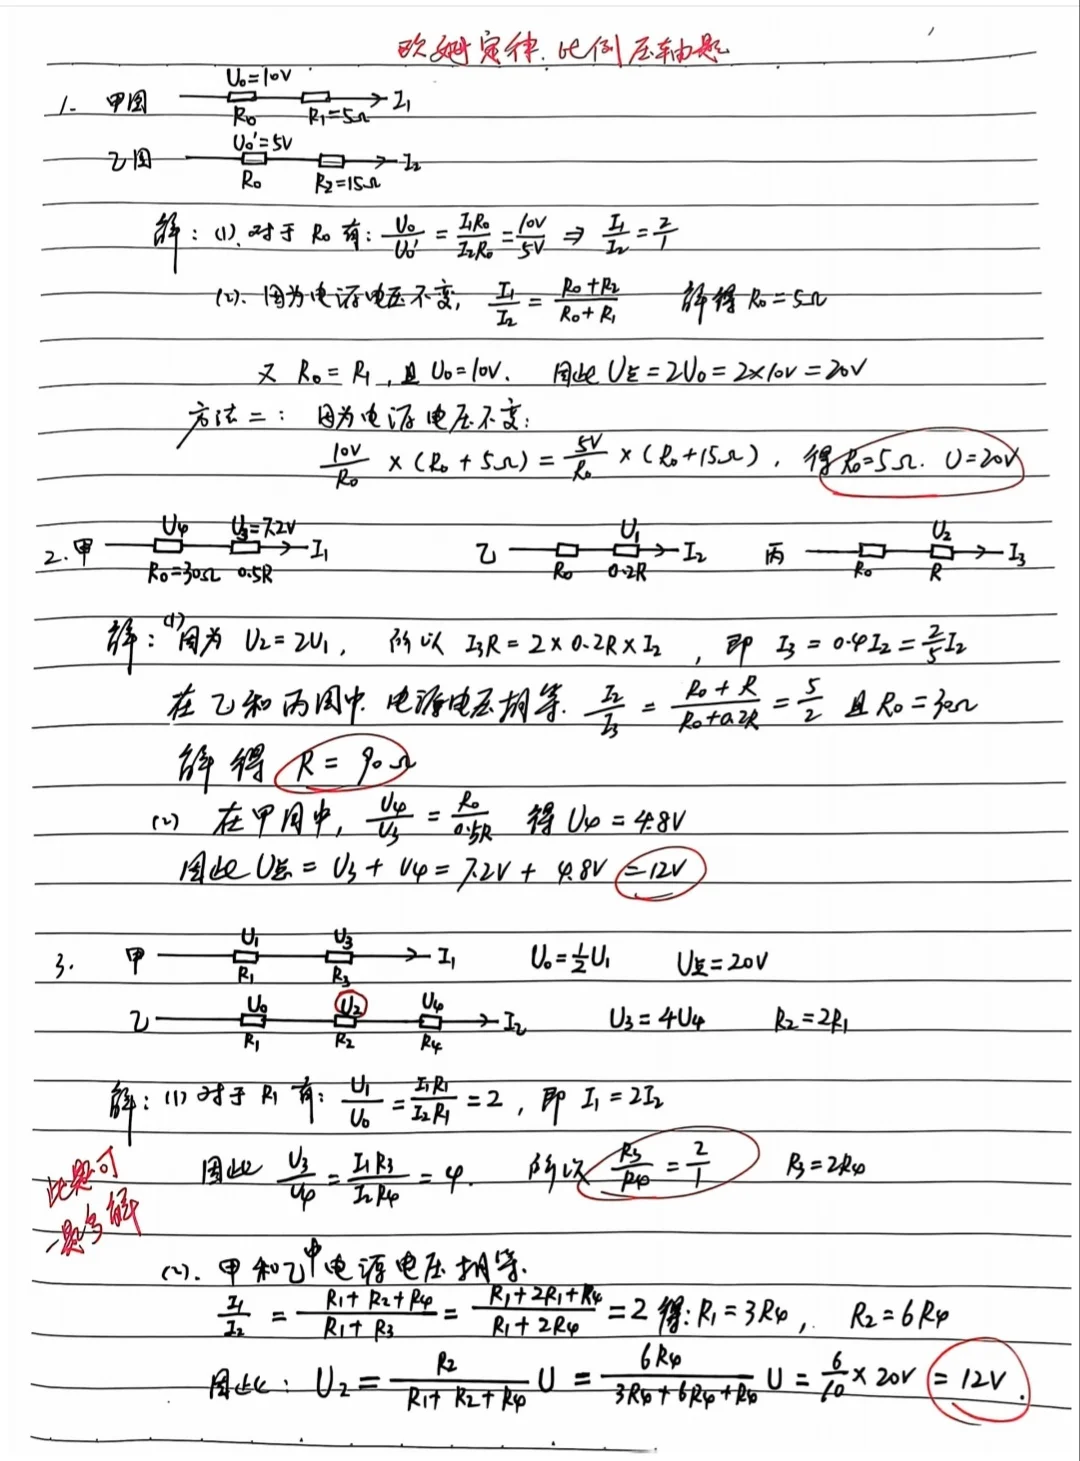 欧姆定律.比例压轴题
1. 甲图 U₀=10V I₁
R₀ R₁=5Ω
乙图 U₀'=5V I₂
R₀ R₂=15Ω
解：(1).对于 R₀ 有：U₀/U₀' = I₁R₀/I₂R₀ = 10V/5V ⇒ I₁/I₂ = 2/1
(2). 因为电源电压不变, I₁/I₂ = (R₀+R₂)/(R₀+R₁) 解得 R₀=5Ω
又 R₀=R₁, 且 U₀=10V. 因此 U总=2U₀=2×10V=20V
方法二： 因为电源电压不变：
10V/R₀ ×(R₀+5Ω)= 5V/R₀ ×(R₀+15Ω), 得R₀=5Ω. U=20V
2.甲 U₄ U₃=7.2V I₁ 乙 U₁ I₂ 丙 U₂ I₃
R₀=30Ω 0.5R R₀ 0.2R R₀ R
解：(1)因为 U₂=2U₁, 所以 I₃R=2×0.2R×I₂, 即 I₃=0.4I₂=2/5I₂
在乙和丙图中. 电源电压相等. I₂/I₃ = (R₀+R)/(R₀+0.2R) = 5/2 且R₀=30Ω
解得 R=90Ω
(2) 在甲图中, U₄/U₃ = R₀/0.5R 得 U₄=4.8V
因此 U总=U₃+U₄=7.2V+4.8V=12V
3. 甲 U₁ U₃ I₁ U₀=½U₁ U总=20V
R₁ R₃
乙 U₀ U₂ U₄ I₂ U₃=4U₄ R₂=2R₁
R₁ R₂ R₄
解：(1)对于 R₁ 有：U₁/U₀ = I₁R₁/I₂R₁ =2, 即 I₁=2I₂
因此 U₃/U₄ = I₁R₃/I₂R₄ =4. 所以 R₃/R₄ = 2/1 R₃=2R₄
此题可
一题多解
(2). 甲和乙中电源电压相等.
I₁/I₂ = (R₁+R₂+R₄)/(R₁+R₃) = (R₁+2R₁+R₄)/(R₁+2R₄) =2 得: R₁=3R₄, R₂=6R₄
因此：U₂= R₂/(R₁+R₂+R₄) U = 6R₄/(3R₄+6R₄+R₄) U = 6/10 ×20V =12V.